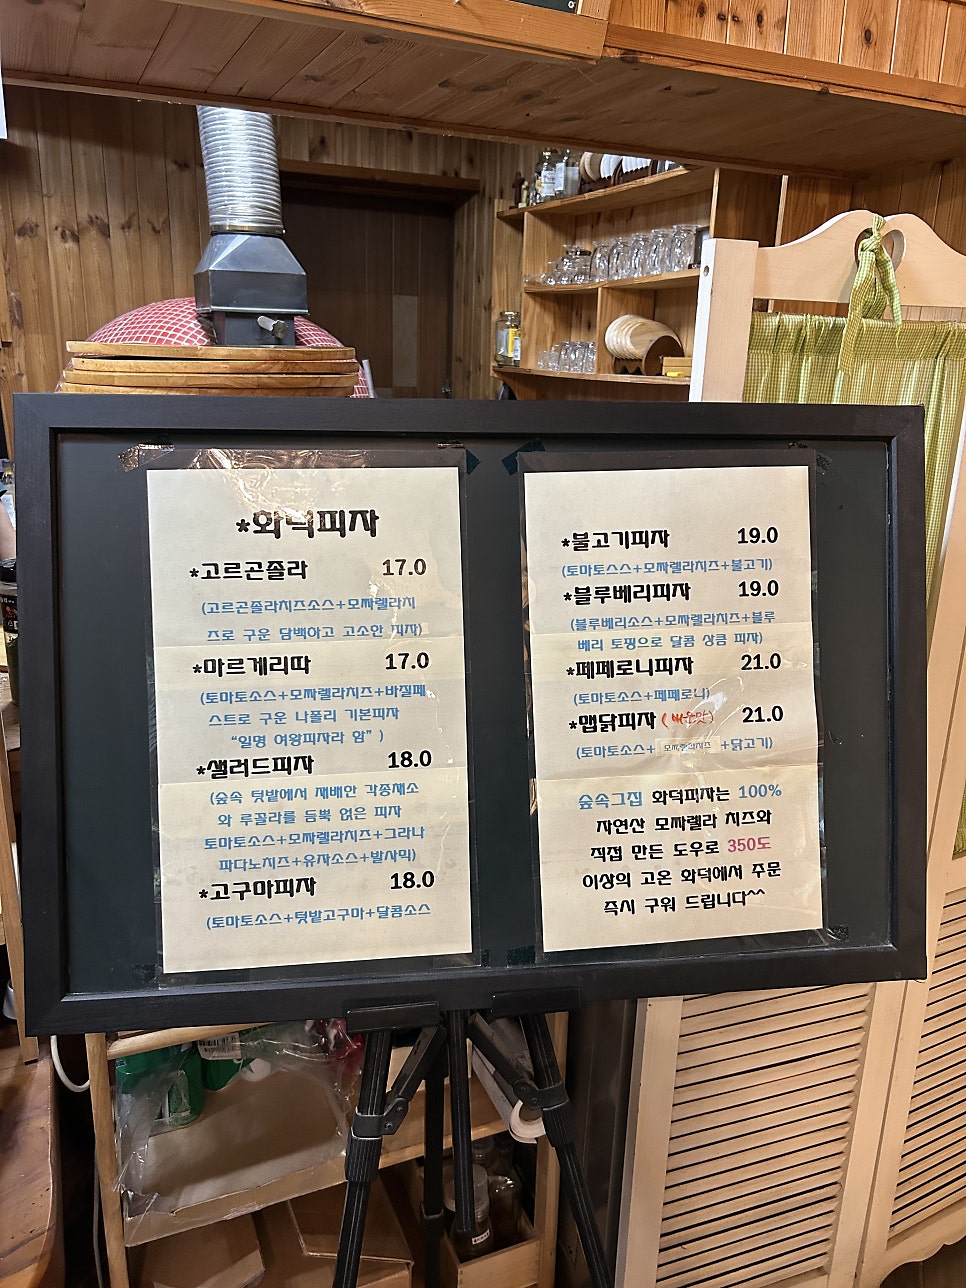 *화덕피자
*고르곤졸라 17.0
(고르곤졸라치즈소스+모짜렐라치
즈로 구운 담백하고 고소한 피자)
*마르게리따 17.0
(토마토소스+모짜렐라치즈+바질페
스트로 구운 나폴리 기본피자
“일명 여왕피자라 함” )
*샐러드피자 18.0
(숲속 텃밭에서 재배한 각종채소
와 루꼴라를 듬뿍 얹은 피자
토마토소스+모짜렐라치즈+그라나
파다노치즈+유자소스+발사믹)
*고구마피자 18.0
(토마토소스+텃밭고구마+달콤소스
*불고기피자 19.0
(토마토스스+모짜렐라치즈+불고기)
*블루베리피자 19.0
(블루베리소스+모짜렐라치즈+블루
베리 토핑으로 달콤 상큼 피자)
*페페로니피자 21.0
(토마토소스+페페로니)
*맵닭피자 (매운맛) 21.0
(토마토소스+ 모짜렐라치즈 +닭고기)
숲속그집 화덕피자는 100%
자연산 모짜렐라 치즈와
직접 만든 도우로 350도
이상의 고온 화덕에서 주문
즉시 구워 드립니다^^